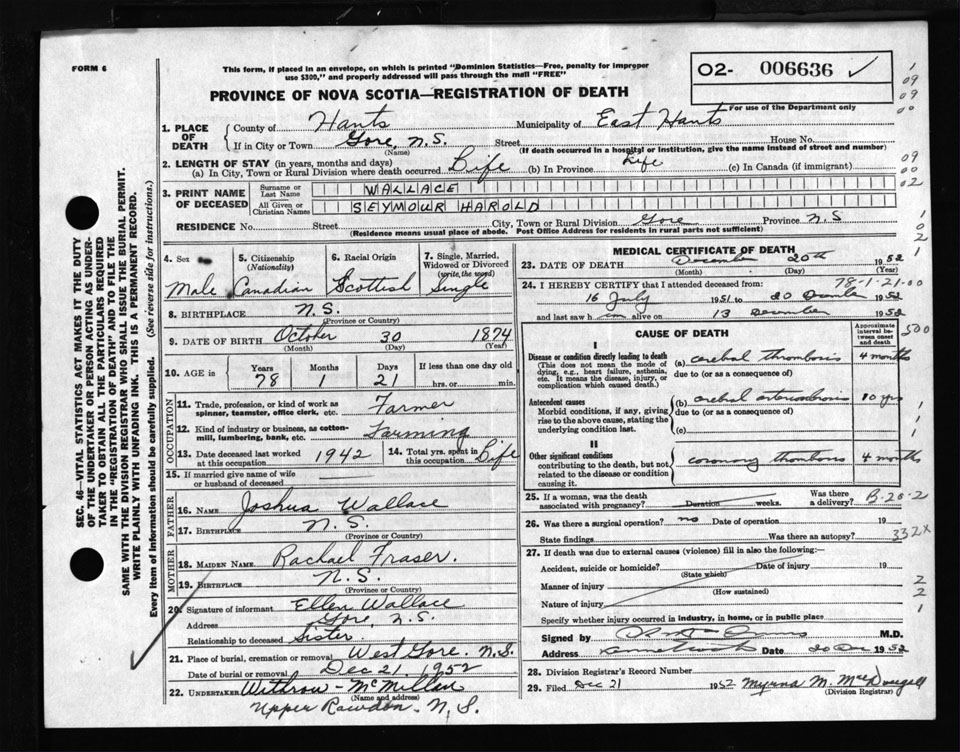 FORM 6
This form, if placed in an envelope, on which is printed "Dominion Statistics—Free, penalty for improper
use $300," and properly addressed will pass through the mail "FREE"
O2- 006636 ✓
For use of the Department only
PROVINCE OF NOVA SCOTIA—REGISTRATION OF DEATH
1. PLACE OF DEATH
County of Hants Municipality of East Hants
If in City or Town Gore, N.S. Street House No.
(Name) (If death occurred in a hospital or institution, give the name instead of street and number)
2. LENGTH OF STAY (in years, months and days)
(a) In City, Town or Rural Division where death occurred Life (b) In Province Life (c) In Canada (if immigrant)
3. PRINT NAME OF DECEASED
Surname or Last Name WALLACE
All Given or Christian Names SEYMOUR HAROLD
RESIDENCE No. Street City, Town or Rural Division Gore Province N.S
(Residence means usual place of abode. Post Office Address for residents in rural parts not sufficient)
4. Sex Male
5. Citizenship (Nationality) Canadian
6. Racial Origin Scottish
7. Single, Married, Widowed or Divorced (write the word) Single
8. BIRTHPLACE N.S.
(Province or Country)
9. DATE OF BIRTH October 30 1874
(Month) (Day) (Year)
10. AGE Years 78 Months 1 Days 21 If less than one day old
hrs. or min.
OCCUPATION
11. Trade, profession, or kind of work as spinner, teamster, office clerk, etc. Farmer
12. Kind of industry or business, as cotton-mill, lumbering, bank, etc. Farming
13. Date deceased last worked at this occupation 1942
14. Total yrs. spent in this occupation Life
15. If married give name of wife or husband of deceased
FATHER
16. NAME Joshua Wallace
17. BIRTHPLACE N.S.
(Province or Country)
MOTHER
18. MAIDEN NAME Rachael Fraser.
19. BIRTHPLACE N.S.
(Province or Country)
20. Signature of informant Ellen Wallace
Address Gore, N.S.
Relationship to deceased Sister
21. Place of burial, cremation or removal West Gore. N.S.
Date of burial or removal Dec 21, 1952
22. UNDERTAKER Withrow - McMillan
(Name and address)
Upper Rawdon. N.S.
MEDICAL CERTIFICATE OF DEATH
23. DATE OF DEATH December 20th 1952
(Month) (Day) (Year)
78-1-21-00
24. I HEREBY CERTIFY that I attended deceased from:
16 July 1951 to 20 December 1952
and last saw h im alive on 13 December 1952
CAUSE OF DEATH
Approximate interval between onset and death
I
Disease or condition directly leading to death
(This does not mean the mode of dying, e.g., heart failure, asthenia, etc. It means the disease, injury, or complication which caused death.)
(a) cerebral thrombosis 4 months
due to (or as a consequence of)
Antecedent causes
Morbid conditions, if any, giving rise to the above cause, stating the underlying condition last.
(b) cerebral arteriosclerosis 10 yrs
due to (or as a consequence of)
(c)
II
Other significant conditions
contributing to the death, but not related to the disease or condition causing it.
coronary thrombosis 4 months
25. If a woman, was the death associated with pregnancy? Duration weeks. Was there a delivery?
B-20-2
26. Was there a surgical operation? no Date of operation 19
State findings Was there an autopsy?
332X
27. If death was due to external causes (violence) fill in also the following:—
Accident, suicide or homicide? Date of injury 19
(State which)
Manner of injury
(How sustained)
Nature of injury
Specify whether injury occurred in industry, in home, or in public place
Signed by M.D.
Address Date 20 Dec 1952
28. Division Registrar's Record Number
29. Filed Dec 21 1952 Myrna M. McDougall
(Division Registrar)
SEC. 46—VITAL STATISTICS ACT MAKES IT THE DUTY
OF THE UNDERTAKER OR PERSON ACTING AS UNDER-
TAKER TO OBTAIN ALL THE PARTICULARS REQUIRED
IN THE "REGISTRATION OF DEATH" AND TO FILE THE
SAME WITH THE DIVISION REGISTRAR WHO SHALL ISSUE THE BURIAL PERMIT.
WRITE PLAINLY WITH UNFADING INK. THIS IS A PERMANENT RECORD.
Every item of information should be carefully supplied. (See reverse side for instructions.)